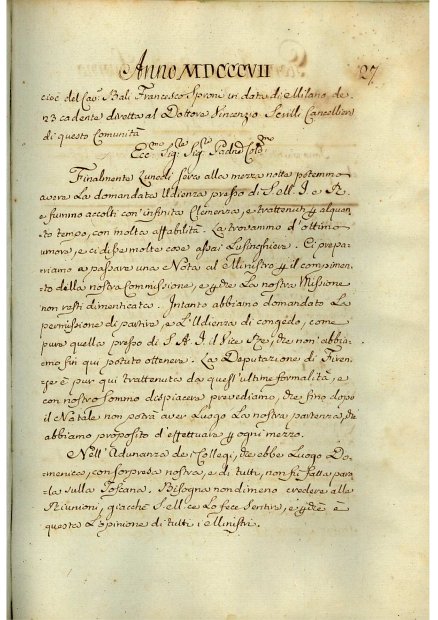 Anno MDCCCVII
27
cioè del Cav: Balì Francesco Sproni in data di Milano de
23 cadente diretta al Dottore Vincenzio Sevili Cancelliere
di questa Comunità
Ecc.mo Sig. Sig. Padne Col.mo
Finalmente Lunedì sera alla mezza notte potemmo
avere La domandata Udienza presso di S. M. I. e R.
e fummo accolti con infinita Clemenza, e trattenuti p alquan
to tempo, con molta affabilità. La trovammo d'ottimo
umore, e ci disse molte cose assai Lusinghiere. Ci prepa
riamo a passare una Nota al Ministro p il compimen
to della nostra Commissione, e p che La nostra Missione
non resti dimenticata. Intanto abbiamo domandato La
permissione di partire, e L'Udienza di congedo, come
pure quella presso di S. A. I. il Vice Re, che non abbia
mo fin qui potuto ottenere. La Deputazione di Firen
ze è pur qui trattenuta da quest'ultime formalità, e
con nostro sommo dispiacere prevediamo, che fino dopo
il Natale non potrà aver Luogo La nostra partenza, che
abbiamo proposito d'effettuare p ogni mezzo.
Nell'Adunanza de Collegj, che ebbe Luogo Do
menica, con sorpresa nostra, e di tutti, non fu fatta paro
la sulla Toscana. Bisogna nondimeno credere alle
Riunioni, giacchè S. M. ce Lo fece sentire, e p che è
questa L'opinione di tutti i Ministri.